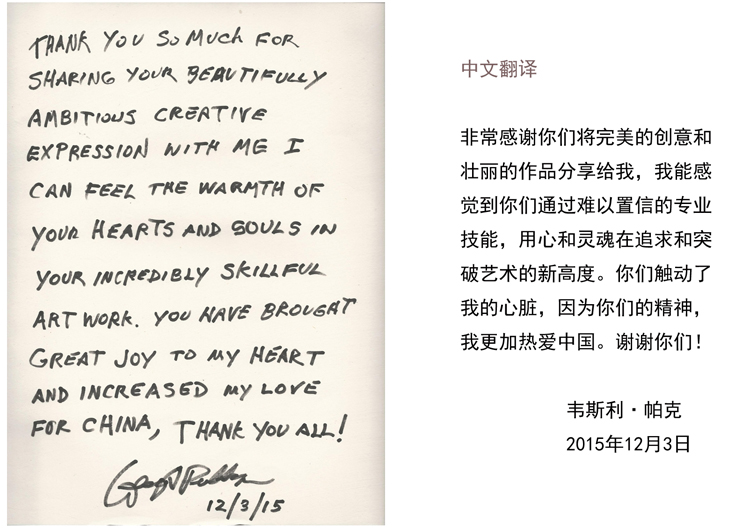 THANK YOU SO MUCH FOR
SHARING YOUR BEAUTIFULLY
AMBITIOUS CREATIVE
EXPRESSION WITH ME I
CAN FEEL THE WARMTH OF
YOUR HEARTS AND SOULS IN
YOUR INCREDIBLY SKILLFUL
ART WORK. YOU HAVE BROUGHT
GREAT JOY TO MY HEART
AND INCREASED MY LOVE
FOR CHINA, THANK YOU ALL!
12/3/15
中文翻译
非常感谢你们将完美的创意和
壮丽的作品分享给我，我能感
觉到你们通过难以置信的专业
技能，用心和灵魂在追求和突
破艺术的新高度。你们触动了
我的心脏，因为你们的精神，
我更加热爱中国。谢谢你们！
韦斯利·帕克
2015年12月3日